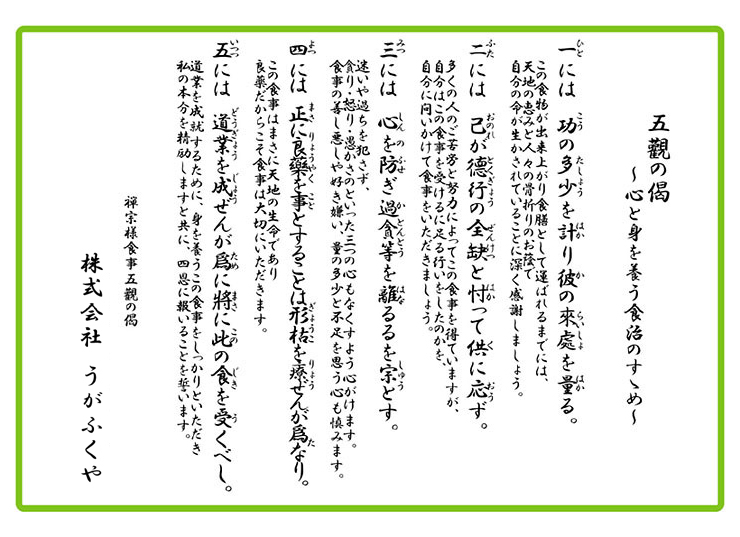 五觀の偈
～心と身を養う食治のすゝめ～
一には 功の多少を計り彼の來處を量る。
この食物が出来上がり食膳として運ばれるまでには、
天地の恵みと人々の骨折りのお蔭で
自分の命が生かされていることに深く感謝しましょう。
二には 己が德行の全缺と忖って供に応ず。
多くの人のご苦労と努力によってこの食事を得ていますが、
自分はこの食事を受けるに足る行いをしたのかを、
自分に問いかけて食事をいただきましょう。
三には 心を防ぎ過貪等を離るるを宗とす。
迷いや過ちを犯さず、
貪り・怒り・愚かさのといった三つの心もなくすよう心がけます。
食事の善し悪しや好き嫌い、量の多少と不足を思う心も慎みます。
四には 正に良藥を事とすることは形枯を療ぜんが爲なり。
この食事はまさに天地の生命であり
良薬だからこそ食事は大切にいただきます。
五には 道業を成ぜんが爲に將に此の食を受くべし。
道業を成就するために、身を養うこの食事をしっかりといただき
私の本分を精励しますと共に、四恩に報いることを誓います。
禅宗様食事五觀の偈
株式会社 うがふくや